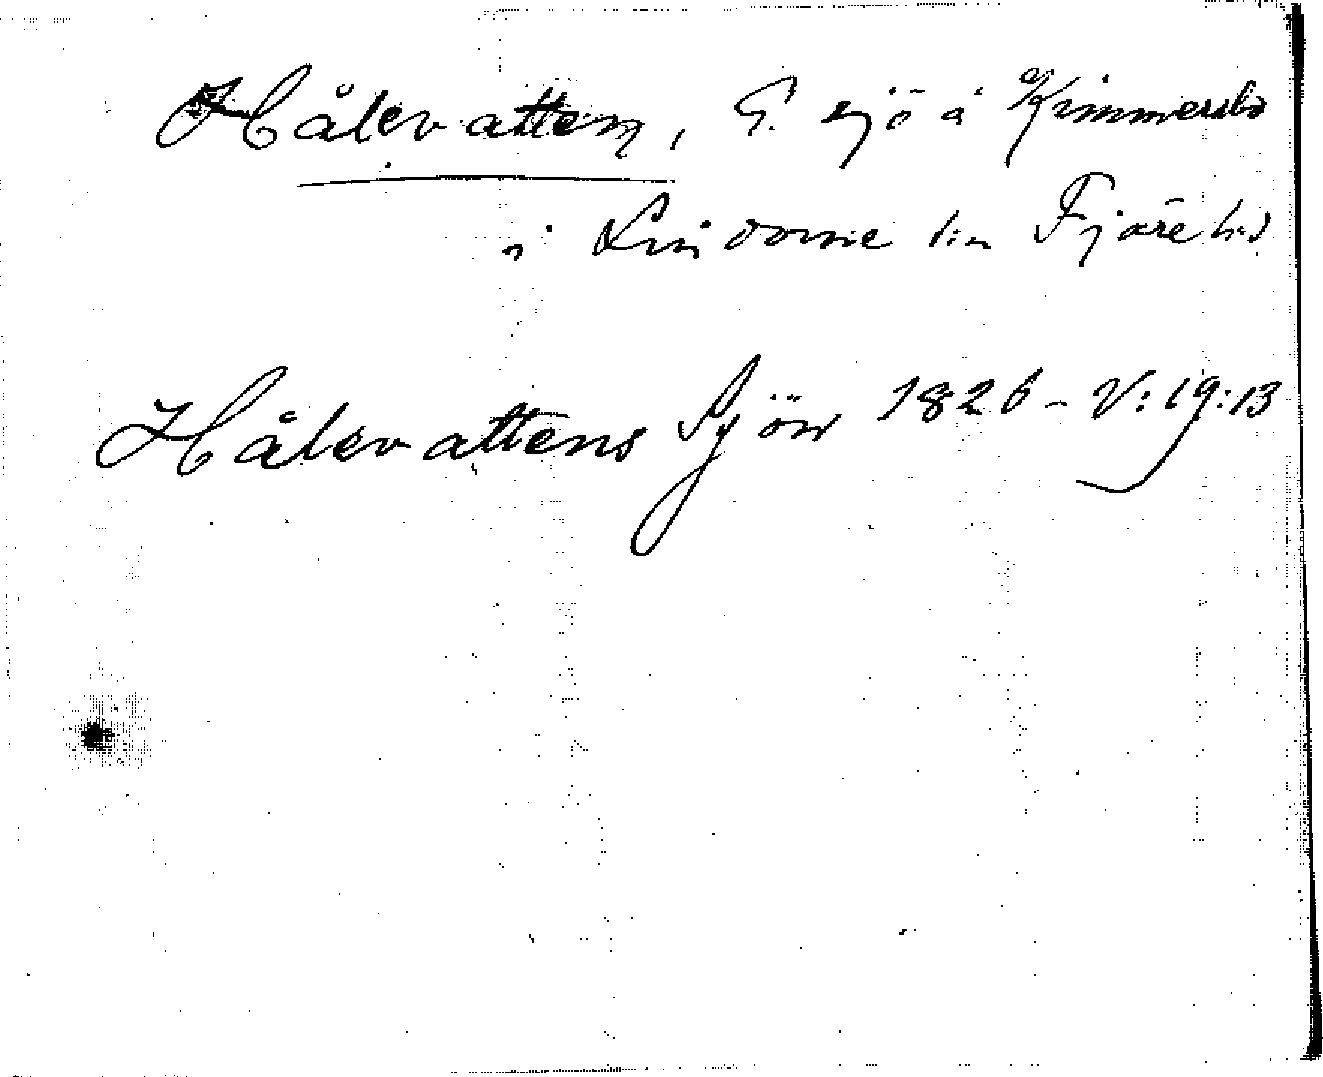 Hålevatten, G. sjö å Kimmersbo
i Lindome sn Fjäre hd
Hålevattens Sjön 1826 - V:19:13